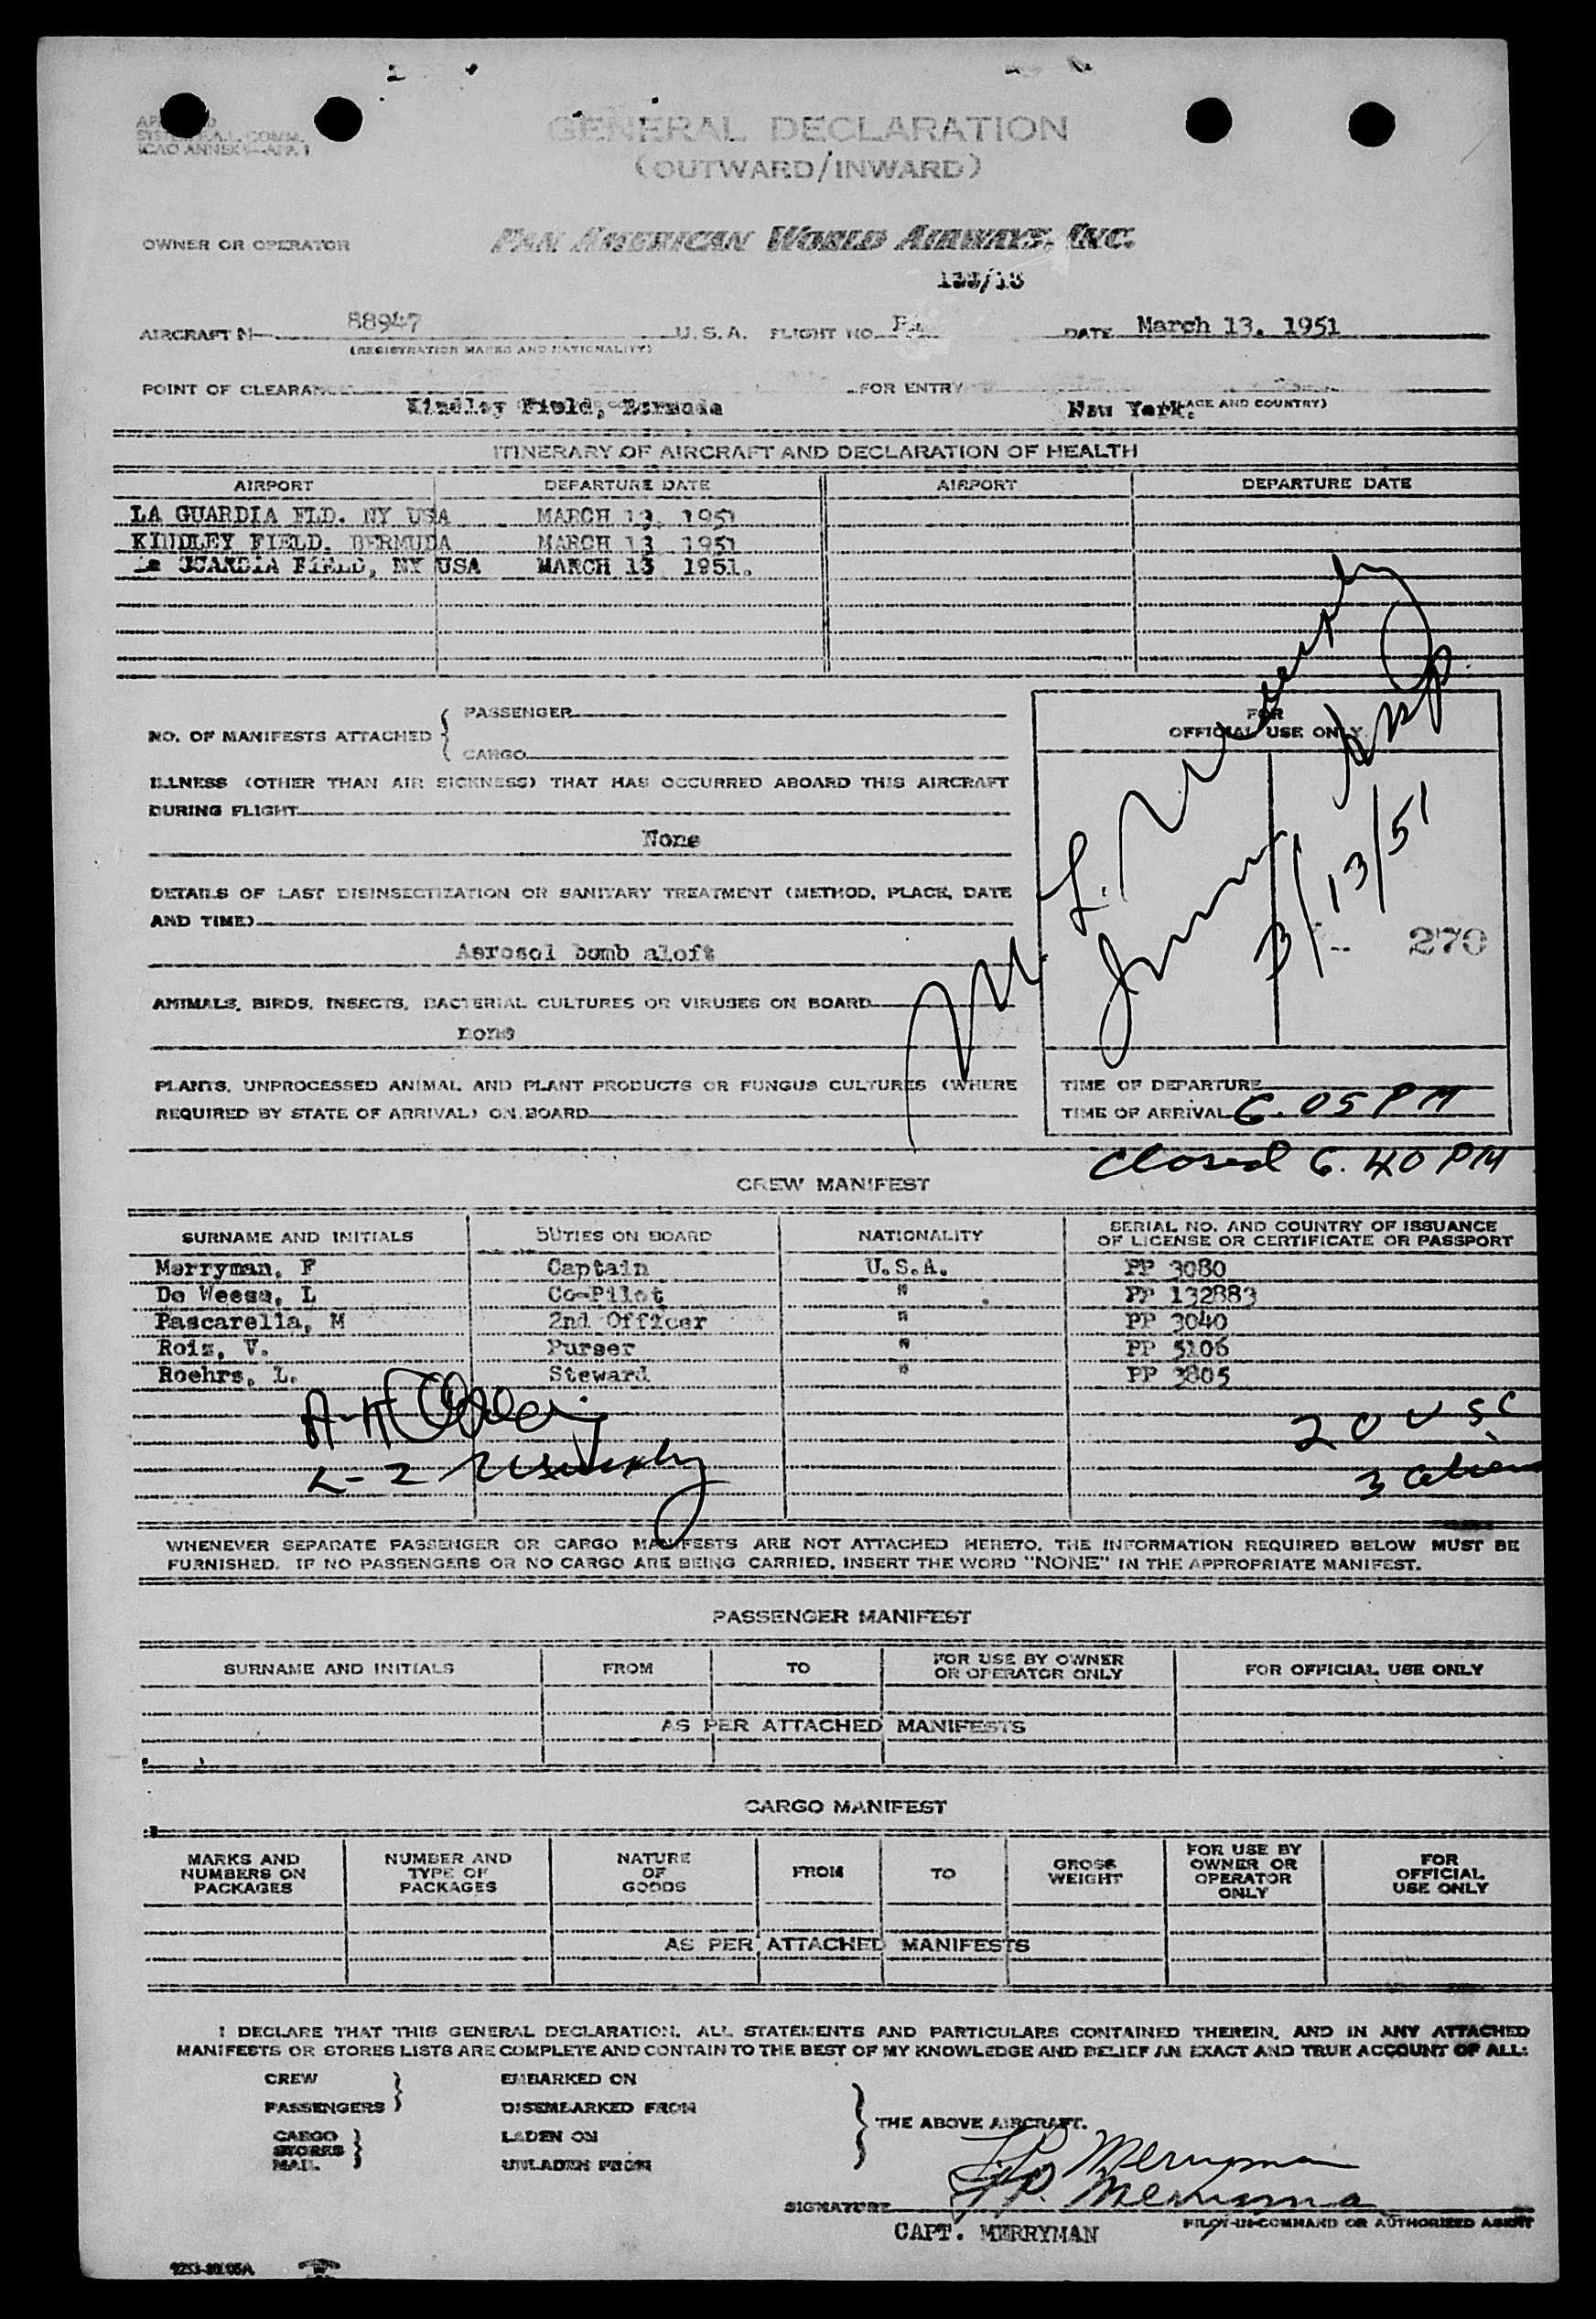 GENERAL DECLARATION
(OUTWARD/INWARD)
ICAO ANNEX
OWNER OR OPERATOR PAN AMERICAN WORLD AIRWAYS, INC.
AIRCRAFT N 88947 U.S.A. FLIGHT NO. DATE March 13. 1951
(REGISTRATION MARKS AND NATIONALITY)
POINT OF CLEARANCE FOR ENTRY
Kindley Field, Bermuda New York.
AND COUNTRY)
ITINERARY OF AIRCRAFT AND DECLARATION OF HEALTH
AIRPORT DEPARTURE DATE AIRPORT DEPARTURE DATE
LA GUARDIA FLD. NY USA MARCH 13, 1951
KINDLEY FIELD, BERMUDA MARCH 13 1951
La GUARDIA FIELD, NY USA MARCH 13 1951.
NO. OF MANIFESTS ATTACHED { PASSENGER
CARGO
FOR
OFFICIAL USE ONLY
ILLNESS (OTHER THAN AIR SICKNESS) THAT HAS OCCURRED ABOARD THIS AIRCRAFT
DURING FLIGHT
None
DETAILS OF LAST DISINSECTIZATION OR SANITARY TREATMENT (METHOD, PLACE, DATE
AND TIME)
Aerosol bomb aloft
3/13/51
270
ANIMALS, BIRDS, INSECTS, BACTERIAL CULTURES OR VIRUSES ON BOARD
none
PLANTS, UNPROCESSED ANIMAL AND PLANT PRODUCTS OR FUNGUS CULTURES (WHERE
REQUIRED BY STATE OF ARRIVAL) ON BOARD
TIME OF DEPARTURE
TIME OF ARRIVAL 6.05 PM
Closed 6.40 PM
CREW MANIFEST
SURNAME AND INITIALS DUTIES ON BOARD NATIONALITY SERIAL NO. AND COUNTRY OF ISSUANCE
OF LICENSE OR CERTIFICATE OR PASSPORT
Merryman, F Captain U.S.A. PP 3080
De Weese, L Co-Pilot " PP 132883
Pascarella, M 2nd Officer " PP 3040
Roiz, V. Purser " PP 5106
Roehrs, L. Steward " PP 3805
20 USC
3 alien
WHENEVER SEPARATE PASSENGER OR CARGO MANIFESTS ARE NOT ATTACHED HERETO, THE INFORMATION REQUIRED BELOW MUST BE
FURNISHED. IF NO PASSENGERS OR NO CARGO ARE BEING CARRIED, INSERT THE WORD "NONE" IN THE APPROPRIATE MANIFEST.
PASSENGER MANIFEST
SURNAME AND INITIALS FROM TO FOR USE BY OWNER
OR OPERATOR ONLY FOR OFFICIAL USE ONLY
AS PER ATTACHED MANIFESTS
CARGO MANIFEST
MARKS AND
NUMBERS ON
PACKAGES NUMBER AND
TYPE OF
PACKAGES NATURE
OF
GOODS FROM TO GROSS
WEIGHT FOR USE BY
OWNER OR
OPERATOR
ONLY FOR
OFFICIAL
USE ONLY
AS PER ATTACHED MANIFESTS
I DECLARE THAT THIS GENERAL DECLARATION, ALL STATEMENTS AND PARTICULARS CONTAINED THEREIN, AND IN ANY ATTACHED
MANIFESTS OR STORES LISTS ARE COMPLETE AND CONTAIN TO THE BEST OF MY KNOWLEDGE AND BELIEF AN EXACT AND TRUE ACCOUNT OF ALL:
CREW EMBARKED ON
PASSENGERS DISEMBARKED FROM
THE ABOVE AIRCRAFT.
CARGO LADEN ON
STORES
MAIL UNLADEN FROM
Merryman
SIGNATURE Merryman
CAPT. MERRYMAN PILOT-IN-COMMAND OR AUTHORIZED AGENT